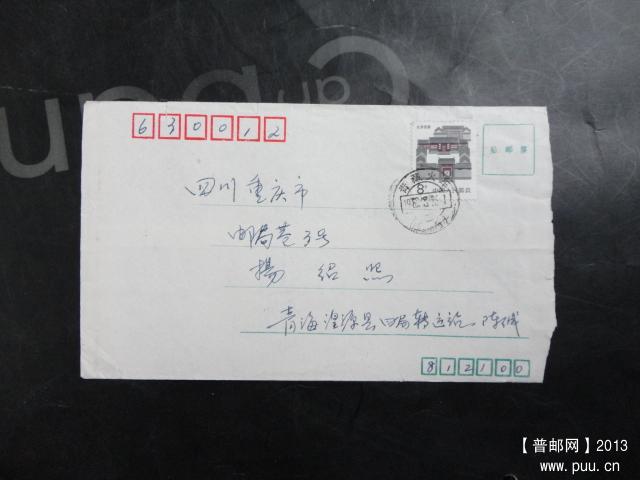 630012
贴邮票
四川重庆市
邮局巷3号
楊绍熙
青海湟源县邮局转运站 陈城
812100
【普邮网】2013
www.puu.cn